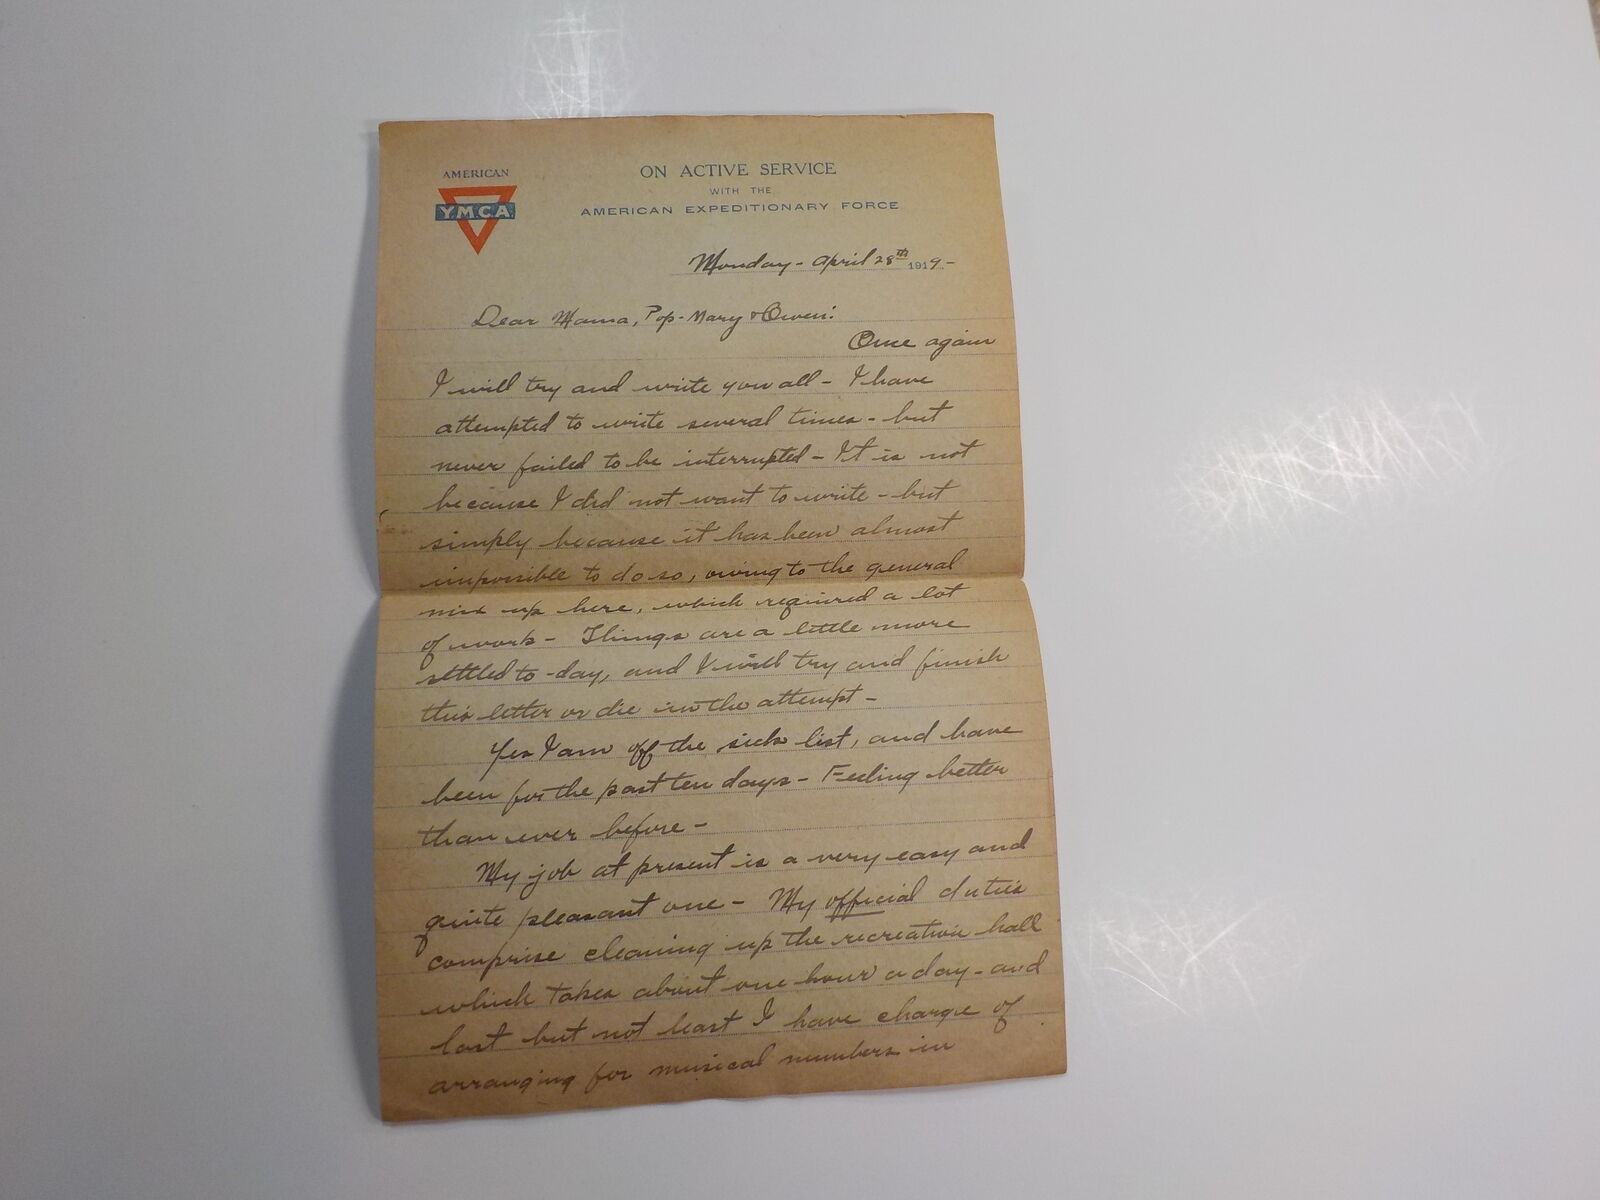 AMERICAN
Y.M.C.A.
ON ACTIVE SERVICE
WITH THE
AMERICAN EXPEDITIONARY FORCE
Monday - April 28th 1919 -
Dear Mama, Pop - Mary & Owen:
Once again
I will try and write you all - I have
attempted to write several times - but
never failed to be interrupted - It is not
because I did not want to write - but
simply because it has been almost
impossible to do so, owing to the general
mix up here, which required a lot
of work - Things are a little more
settled to-day, and I will try and finish
this letter or die in the attempt -
Yes I am off the sick list, and have
been for the past ten days - Feeling better
than ever before -
My job at present is a very easy and
quite pleasant one - My official duties
comprise cleaning up the recreation hall
which takes about one hour a day - and
last but not least I have charge of
arranging for musical numbers in